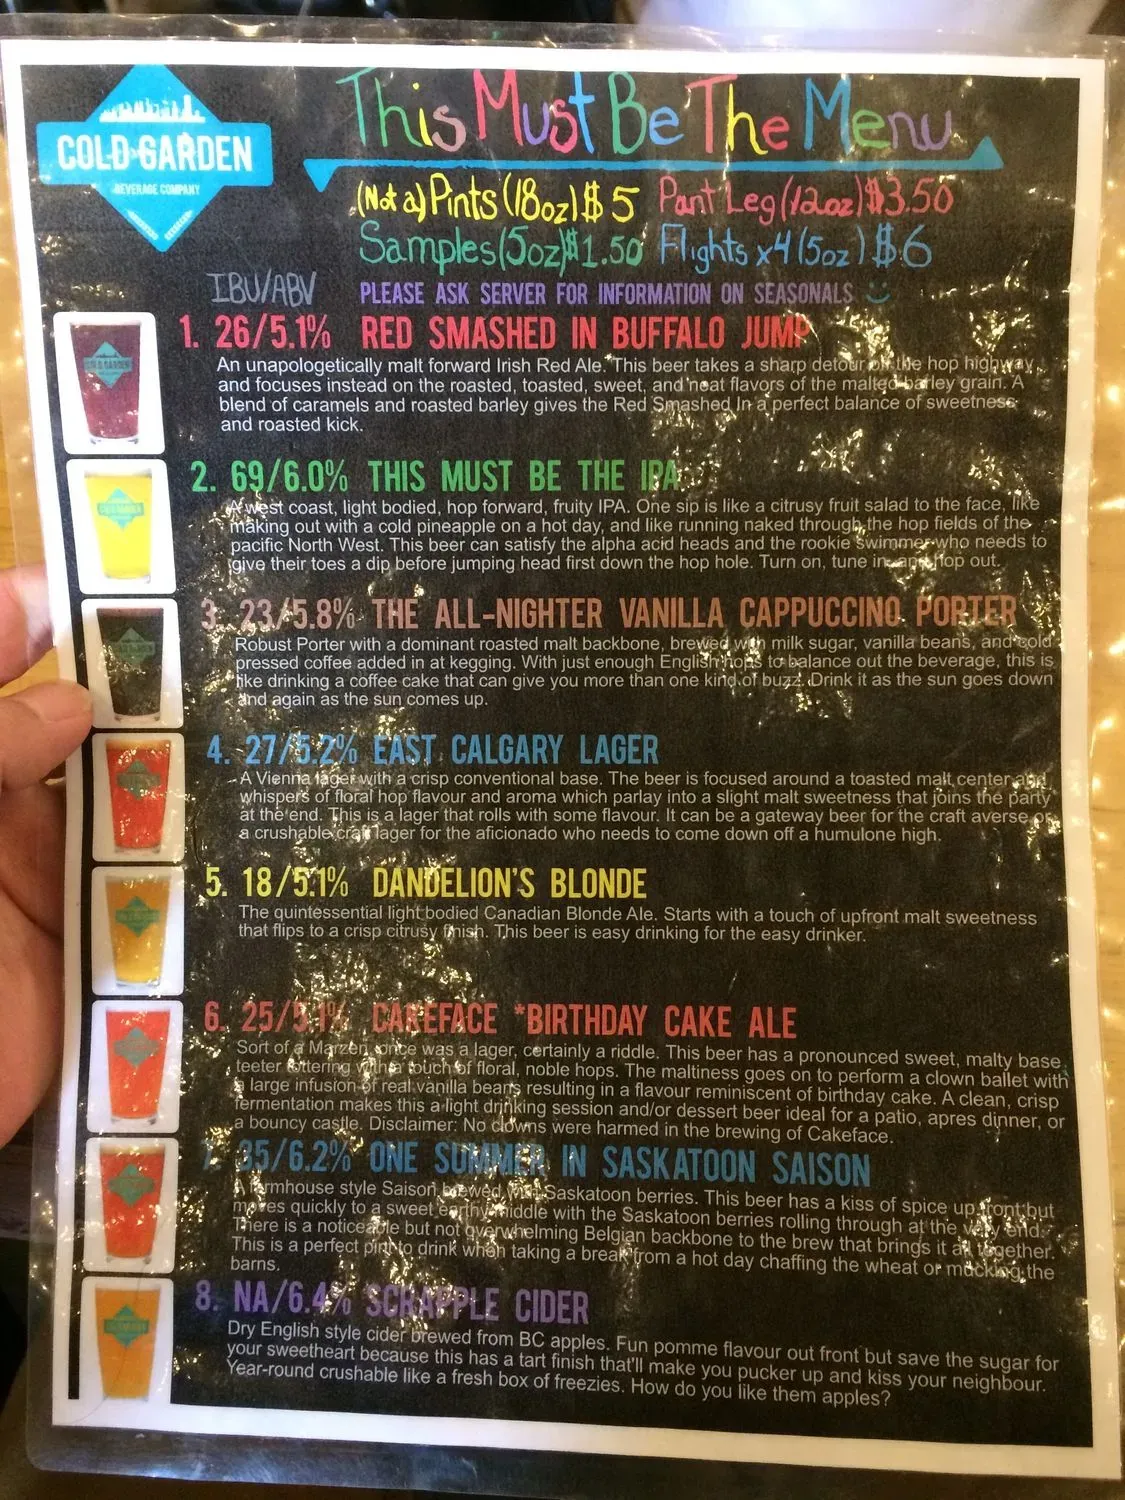 COLD GARDEN
BEVERAGE COMPANY
This Must Be The Menu
(Not a) Pints (18oz) $5 Pant Leg (12oz) $3.50
Samples (5oz) $1.50 Flights x4 (5oz) $6
IBU/ABV PLEASE ASK SERVER FOR INFORMATION ON SEASONALS
1. 26/5.1% RED SMASHED IN BUFFALO JUMP
An unapologetically malt forward Irish Red Ale. This beer takes a sharp detour off the hop highway
and focuses instead on the roasted, toasted, sweet, and neat flavors of the malted barley grain. A
blend of caramels and roasted barley gives the Red Smashed In a perfect balance of sweetness
and roasted kick.
2. 69/6.0% THIS MUST BE THE IPA
A west coast, light bodied, hop forward, fruity IPA. One sip is like a citrusy fruit salad to the face, like
making out with a cold pineapple on a hot day, and like running naked through the hop fields of the
pacific North West. This beer can satisfy the alpha acid heads and the rookie swimmer who needs to
give their toes a dip before jumping head first down the hop hole. Turn on, tune in and hop out.
3. 23/5.8% THE ALL-NIGHTER VANILLA CAPPUCCINO PORTER
Robust Porter with a dominant roasted malt backbone, brewed with milk sugar, vanilla beans, and cold
pressed coffee added in at kegging. With just enough English hops to balance out the beverage, this is
like drinking a coffee cake that can give you more than one kind of buzz. Drink it as the sun goes down
and again as the sun comes up.
4. 27/5.2% EAST CALGARY LAGER
A Vienna lager with a crisp conventional base. The beer is focused around a toasted malt center and
whispers of floral hop flavour and aroma which parlay into a slight malt sweetness that joins the party
at the end. This is a lager that rolls with some flavour. It can be a gateway beer for the craft averse or
a crushable craft lager for the aficionado who needs to come down off a humulone high.
5. 18/5.1% DANDELION'S BLONDE
The quintessential light bodied Canadian Blonde Ale. Starts with a touch of upfront malt sweetness
that flips to a crisp citrusy finish. This beer is easy drinking for the easy drinker.
6. 25/5.1% CAKEFACE *BIRTHDAY CAKE ALE
Sort of a Marzen, once was a lager, certainly a riddle. This beer has a pronounced sweet, malty base,
teeter tottering with a touch of floral, noble hops. The maltiness goes on to perform a clown ballet with
a large infusion of real vanilla beans resulting in a flavour reminiscent of birthday cake. A clean, crisp
fermentation makes this a light drinking session and/or dessert beer ideal for a patio, apres dinner, or
a bouncy castle. Disclaimer: No clowns were harmed in the brewing of Cakeface.
7. 35/6.2% ONE SUMMER IN SASKATOON SAISON
A farmhouse style Saison, brewed with Saskatoon berries. This beer has a kiss of spice up front but
moves quickly to a sweet earthy middle with the Saskatoon berries rolling through at the way end.
There is a noticeable but not overwhelming Belgian backbone to the brew that brings it all together.
This is a perfect pint to drink when taking a break from a hot day chaffing the wheat or mucking the
barns.
8. NA/6.4% SCRAPPLE CIDER
Dry English style cider brewed from BC apples. Fun pomme flavour out front but save the sugar for
your sweetheart because this has a tart finish that'll make you pucker up and kiss your neighbour.
Year-round crushable like a fresh box of freezies. How do you like them apples?